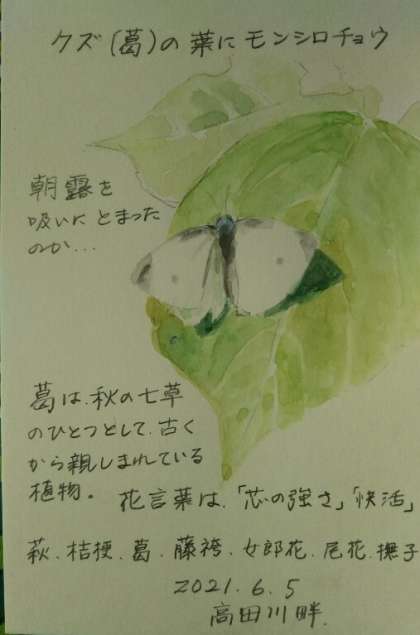 クズ(葛)の葉にモンシロチョウ
朝露を
吸いにとまった
のか...
葛は、秋の七草
のひとつとして、古く
から親しまれている
植物。
花言葉は、「芯の強さ」「快活」
萩、桔梗、葛、藤袴、女郎花、尾花、撫子
2021.6.5
高田川畔